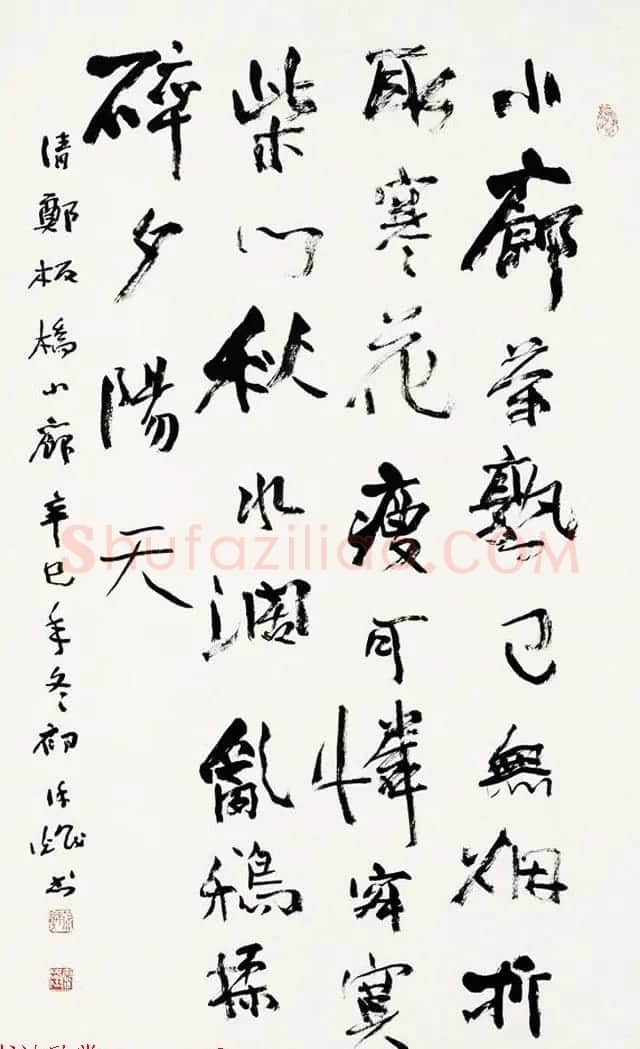 小廊茶熟已無烟折
取寒花瘦可憐寂寞
柴門秋水濶亂鴉揉
碎夕陽天
清鄭板橋小廊辛巳年冬初書
Shufaziliao.COM